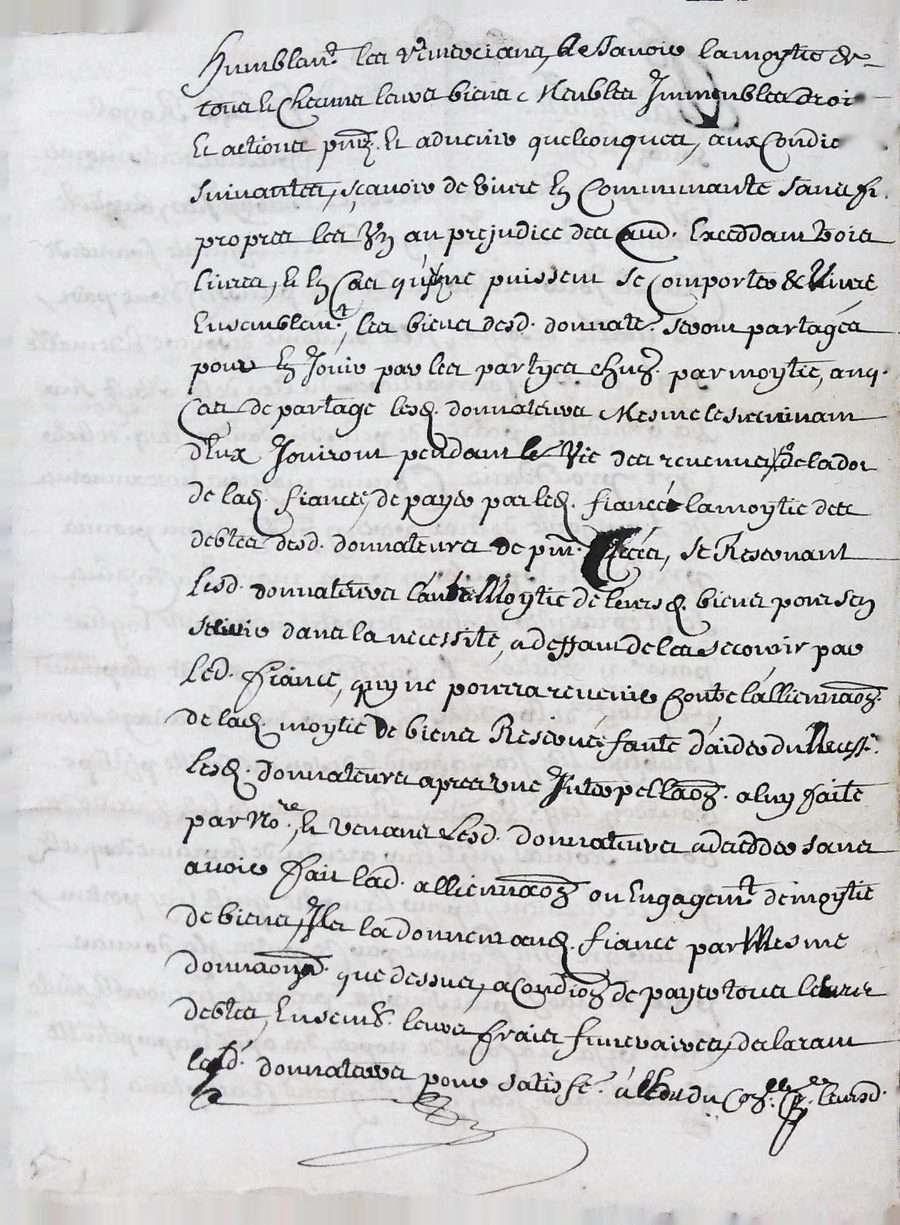 humblem.t les remercians, De Scavoir la moytie de
tous et Chacuns leurs biens Meubles Immeubles droi
Et actions pnts. Et advenir quelconques, aux Condic
suivantes, scavoir de vivre En Communaute sans fe.
propres les Un au prejudice des aud. Exceddam trois
livres, Et En Cas quilz ne puissent se Comporter & Vivre
Ensemblem.t, les biens desd. donnate.s seront partagés
pour En Jouir par les partyes chns. par moytie, auq.
Cas de partage lesd. donnateurs Mesme le survivant
d'Eux Jouiront pendant le Vie des revenus, de la dot
de lad. fiancée, de payer par led. fiancé la moytie des
debtes desd. donnateurs de pnt. se Reservant
lesd. donnateurs l'autre Moytie de leursd. biens pour sen
servir dans la necessité, a deffaut de les secourir par
led. fiancé, quy ne pourra revenir Contre l'allienaon
de lad. moytie de biens Reservés faute d'aider du Necess.e
lesd. donnateurs apres une Interpellaon a luy faite
par No.re, Et venans lesd. donnateurs a decedder sans
avoir fait lad. allienaon ou Engagem.t de moytie
de biens, Ils la donnent aud. fiance par Mesme
donnaon que dessus, a Condion de payer tous leurs
debtes, Ensemb. leurs fraix funeraires, declarant
lesd. donnateurs pour satisfe. a du leursd.